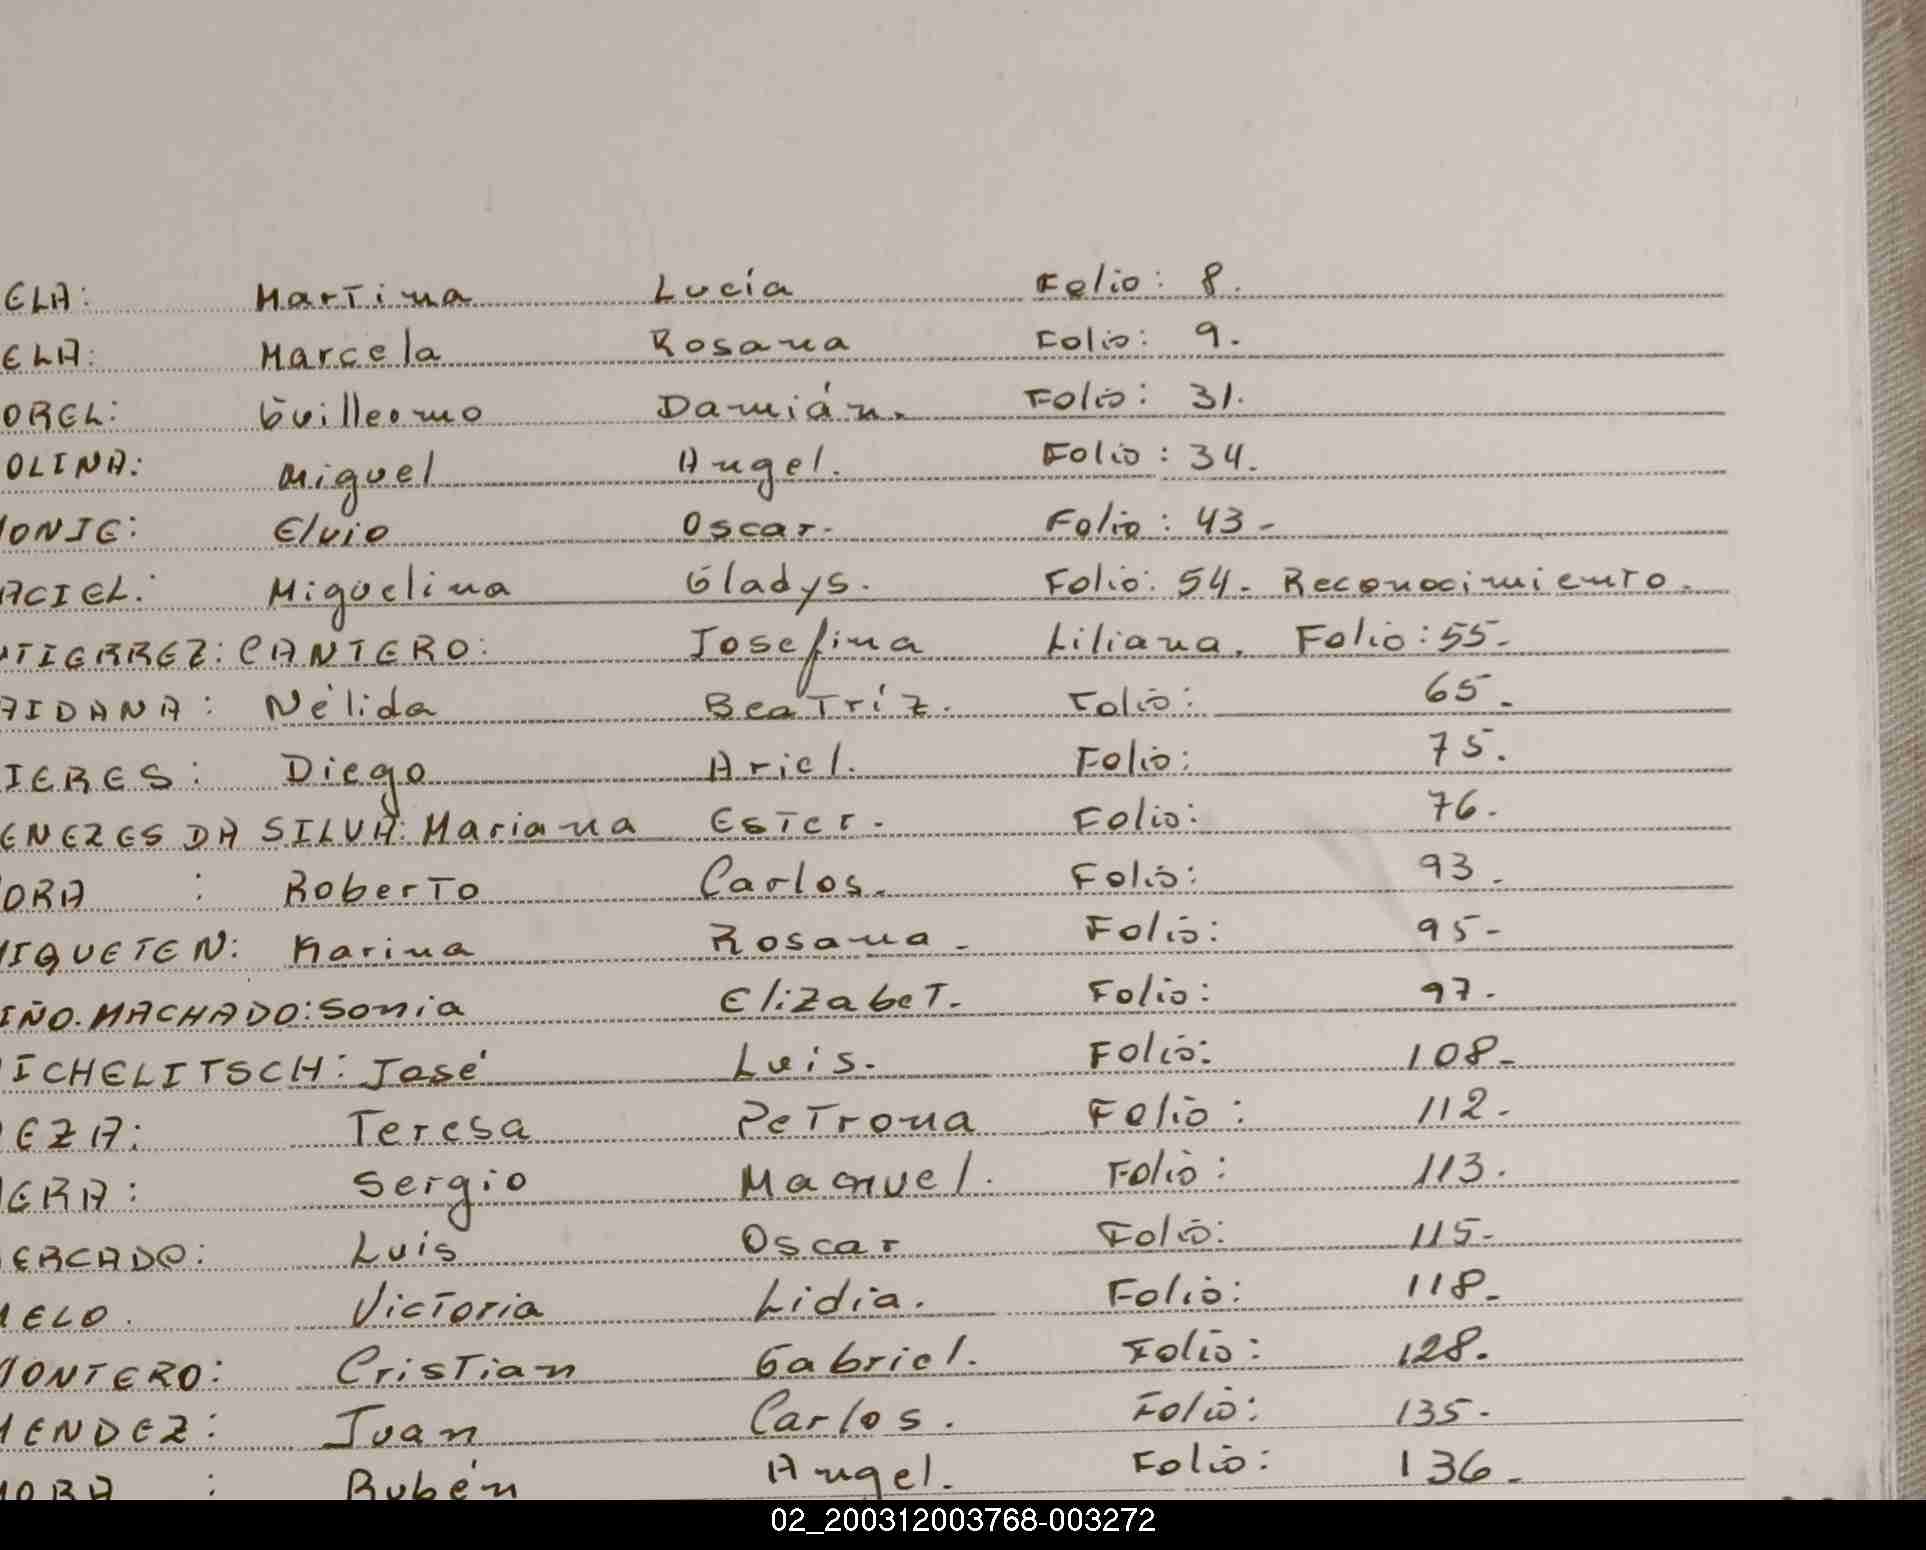 ELA: Martina Lucía Folio: 8.
ELA: Marcela Rosana Folio: 9.
OREL: Guillermo Damián. Folio: 31.
OLINA: Miguel Angel. Folio: 34.
ONJE: Elvio Oscar. Folio: 43-
ACIEL: Miguelina Gladys. Folio: 54. Reconocimiento.
TIERREZ: CANTERO: Josefina Liliana. Folio: 55-
AIDANA: Nélida BeaTríz. Folio: 65.
IERES: Diego Ariel. Folio: 75.
ENEZES DA SILVA: Mariana Ester. Folio: 76.
ORA : Roberto Carlos. Folio: 93.
IQUETEN: Karina Rosana. Folio: 95-
IÑO. MACHADO: Sonia ElizabeT. Folio: 97.
ICHELITSCH: José Luis. Folio: 108-
EZA: Teresa PeTrona Folio: 112.
ERA: Sergio Manuel. Folio: 113.
ERCADO: Luis Oscar Folio: 115-
ELO. Victoria Lidia. Folio: 118-
MONTERO: Cristian Gabriel. Folio: 128.
MENDEZ: Juan Carlos. Folio: 135-
MORA : Rubén Angel. Folio: 136-
02_200312003768-003272